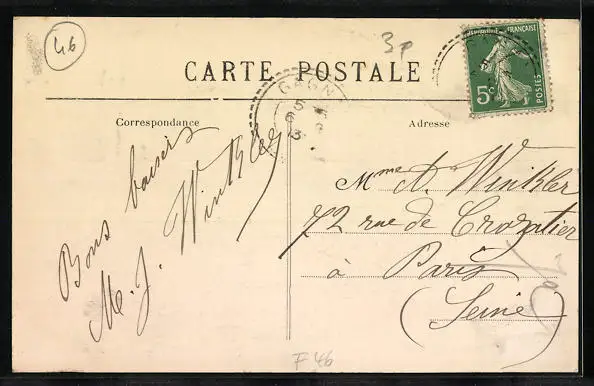 46
3 p
CARTE POSTALE
RÉPUBLIQUE FRANÇAISE
5c POSTES
GAGNY
5
6
13
Correspondance
Adresse
Bons baisers
M. J. Winkler
Mme A. Winkler
72 rue de Crozatier
à Paris
(Seine)
F 46